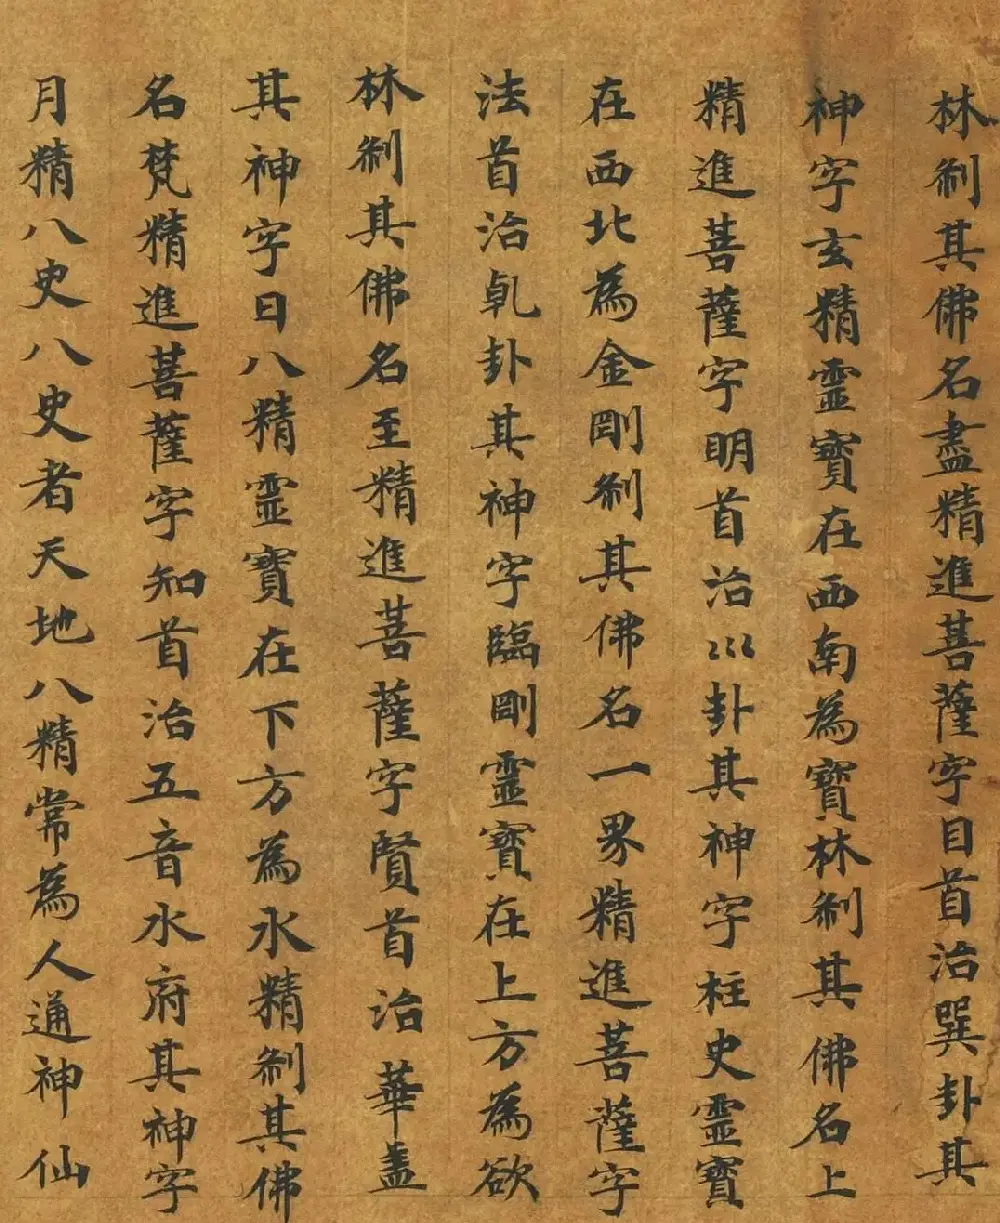 林刹其佛名盡精進菩薩字目首治巽卦其
神字玄精靈寶在西南為寶林刹其佛名上
精進菩薩字明首治巛卦其神字柱史靈寶
在西北為金剛刹其佛名一界精進菩薩字
法首治乹卦其神字臨剛靈寶在上方為欲
林刹其佛名至精進菩薩字賢首治華盖
其神字日八精靈寶在下方為水精刹其佛
名梵精進菩薩字知首治五音水府其神字
月精八史八史者天地八精常為人通神仙